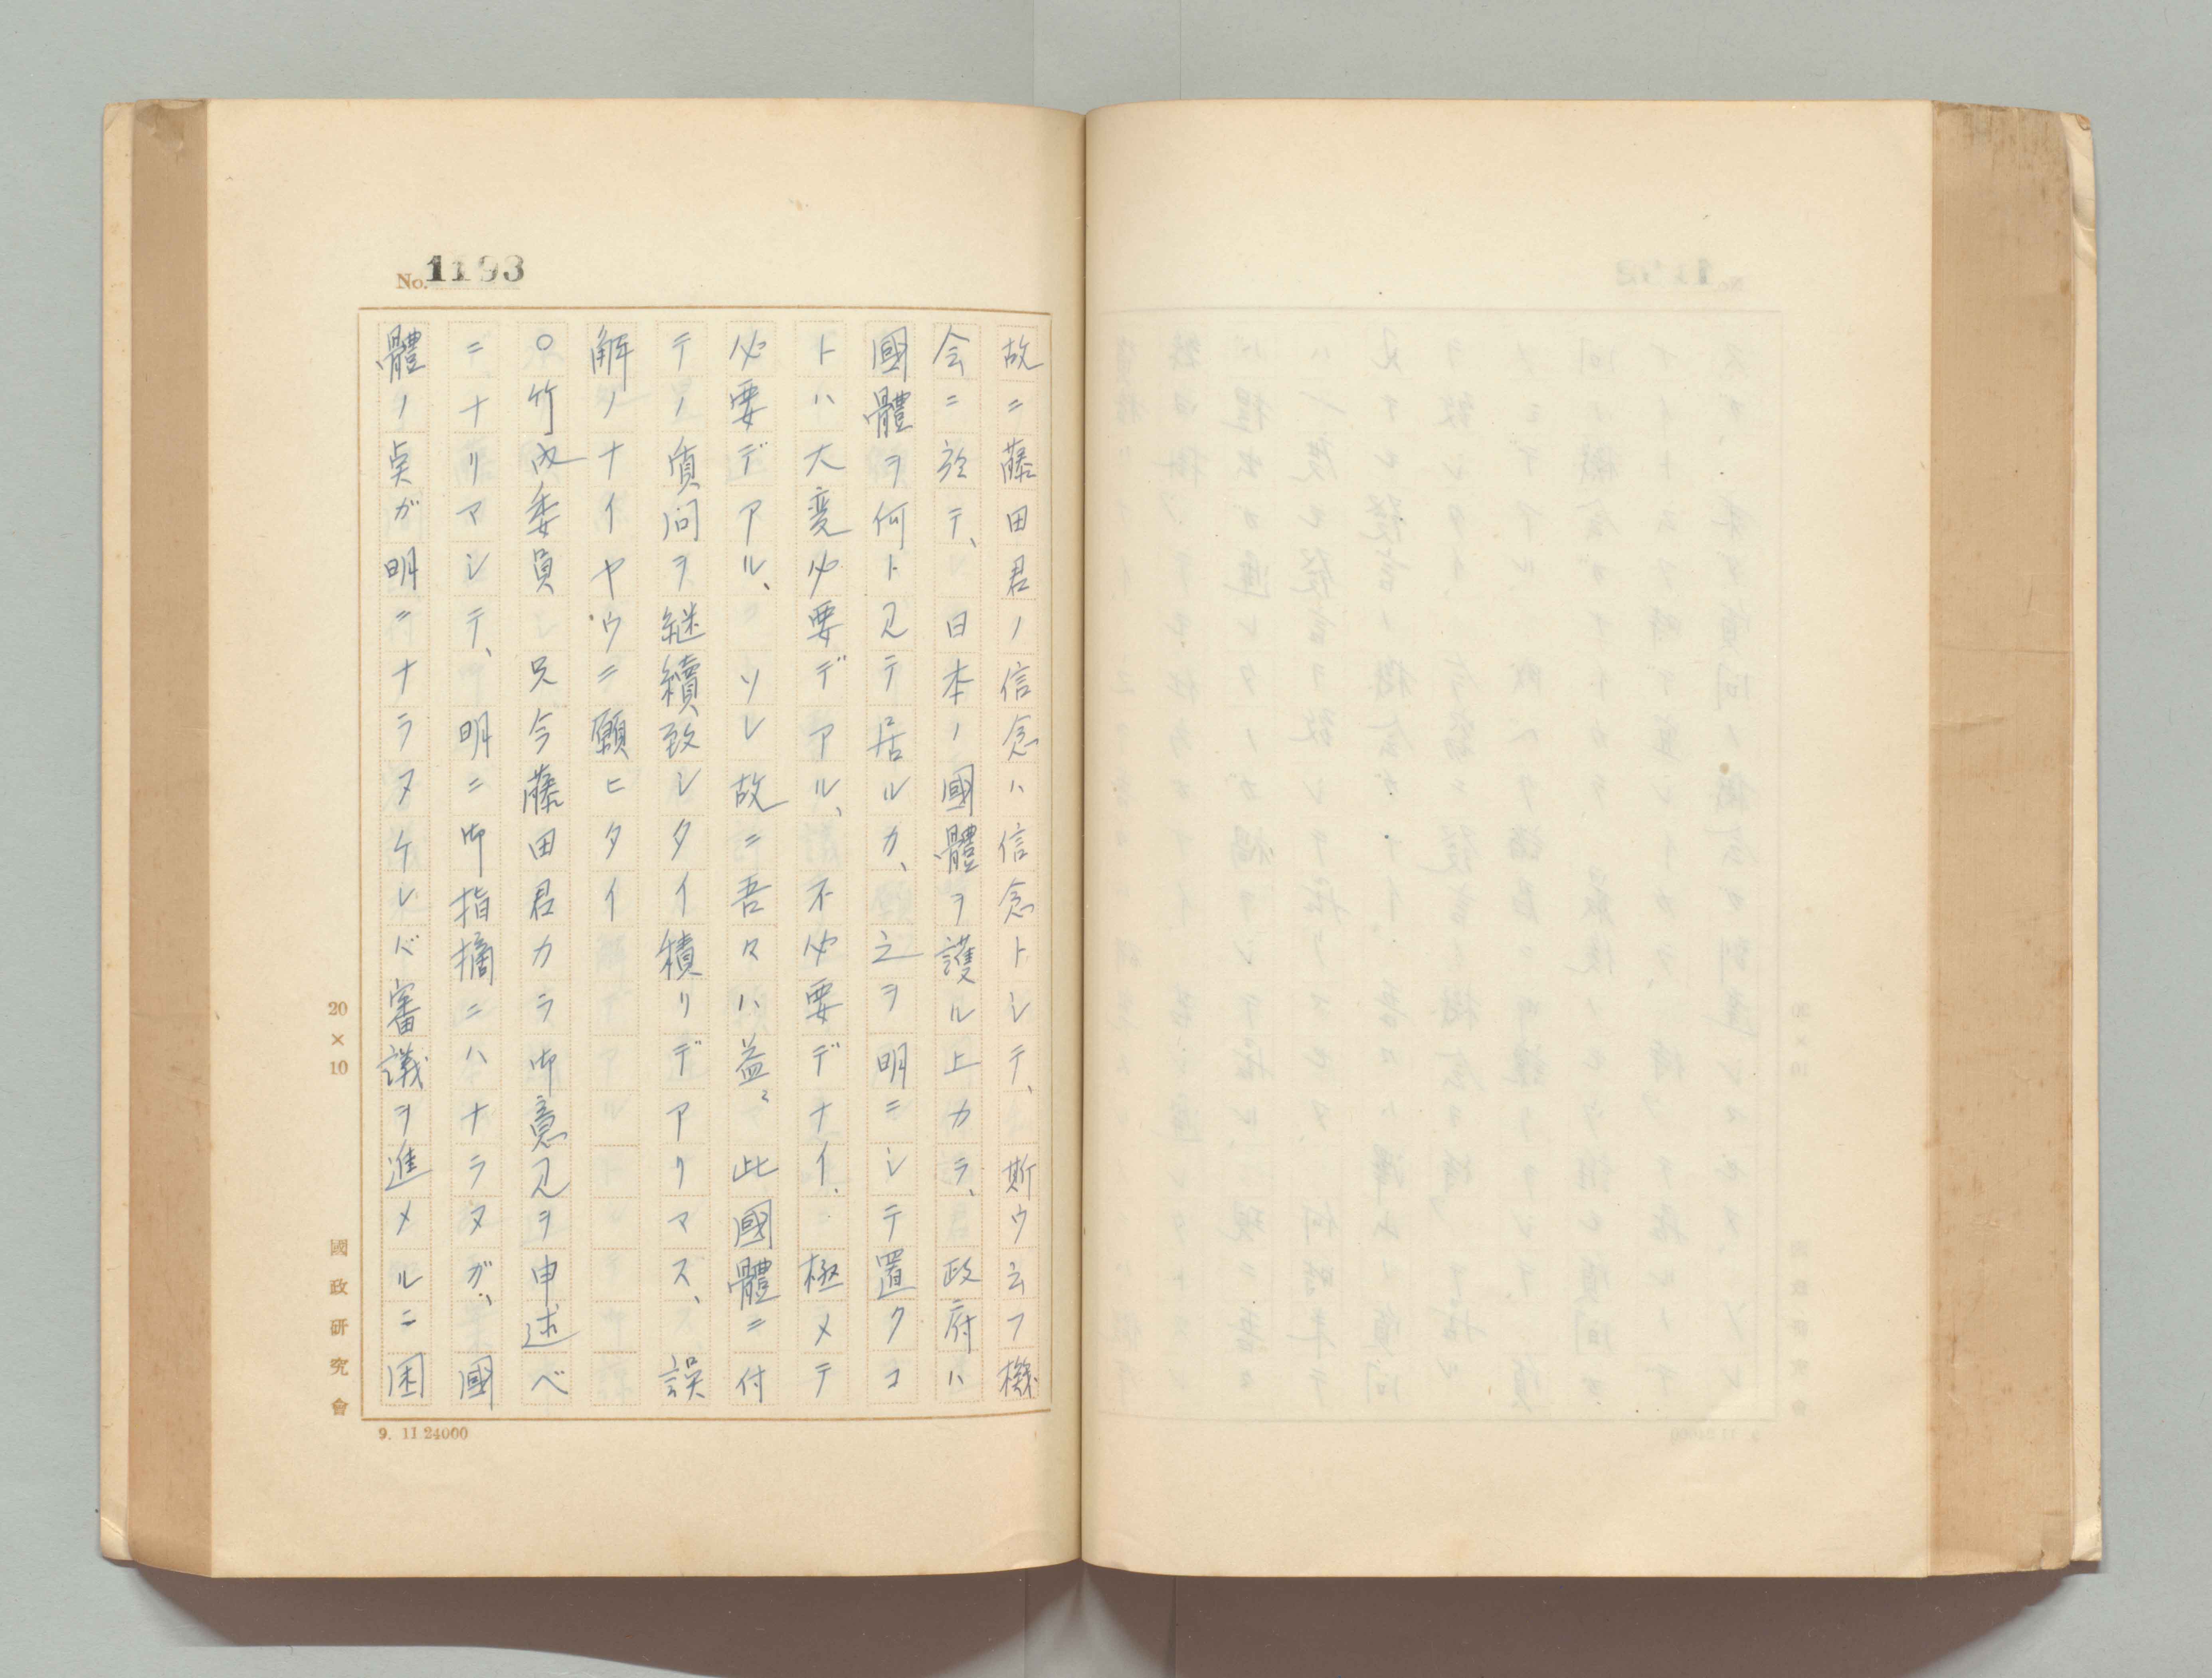 No. 1193
故ニ藤田君ノ信念ハ信念トシテ、斯ウ云フ機
会ニ於テ、日本ノ國體ヲ護ル上カラ、政府ハ
國體ヲ何ト見テ居ルカ、之ヲ明ニシテ置クコ
トハ大変必要デアル、不必要デナイ、極メテ
必要デアル、ソレ故ニ吾々ハ益〻此國體ニ付
テノ質問ヲ継續致シタイ積リデアリマス、誤
解ノナイヤウニ願ヒタイ
○竹内委員 只今藤田君カラ御意見ヲ申述ベ
ニナリマシテ、明ニ御指摘ニハナラヌガ、國
體ノ点ガ明ニナラヌケレバ審議ヲ進メルニ困
20×10
國政研究會
9. 11 24000